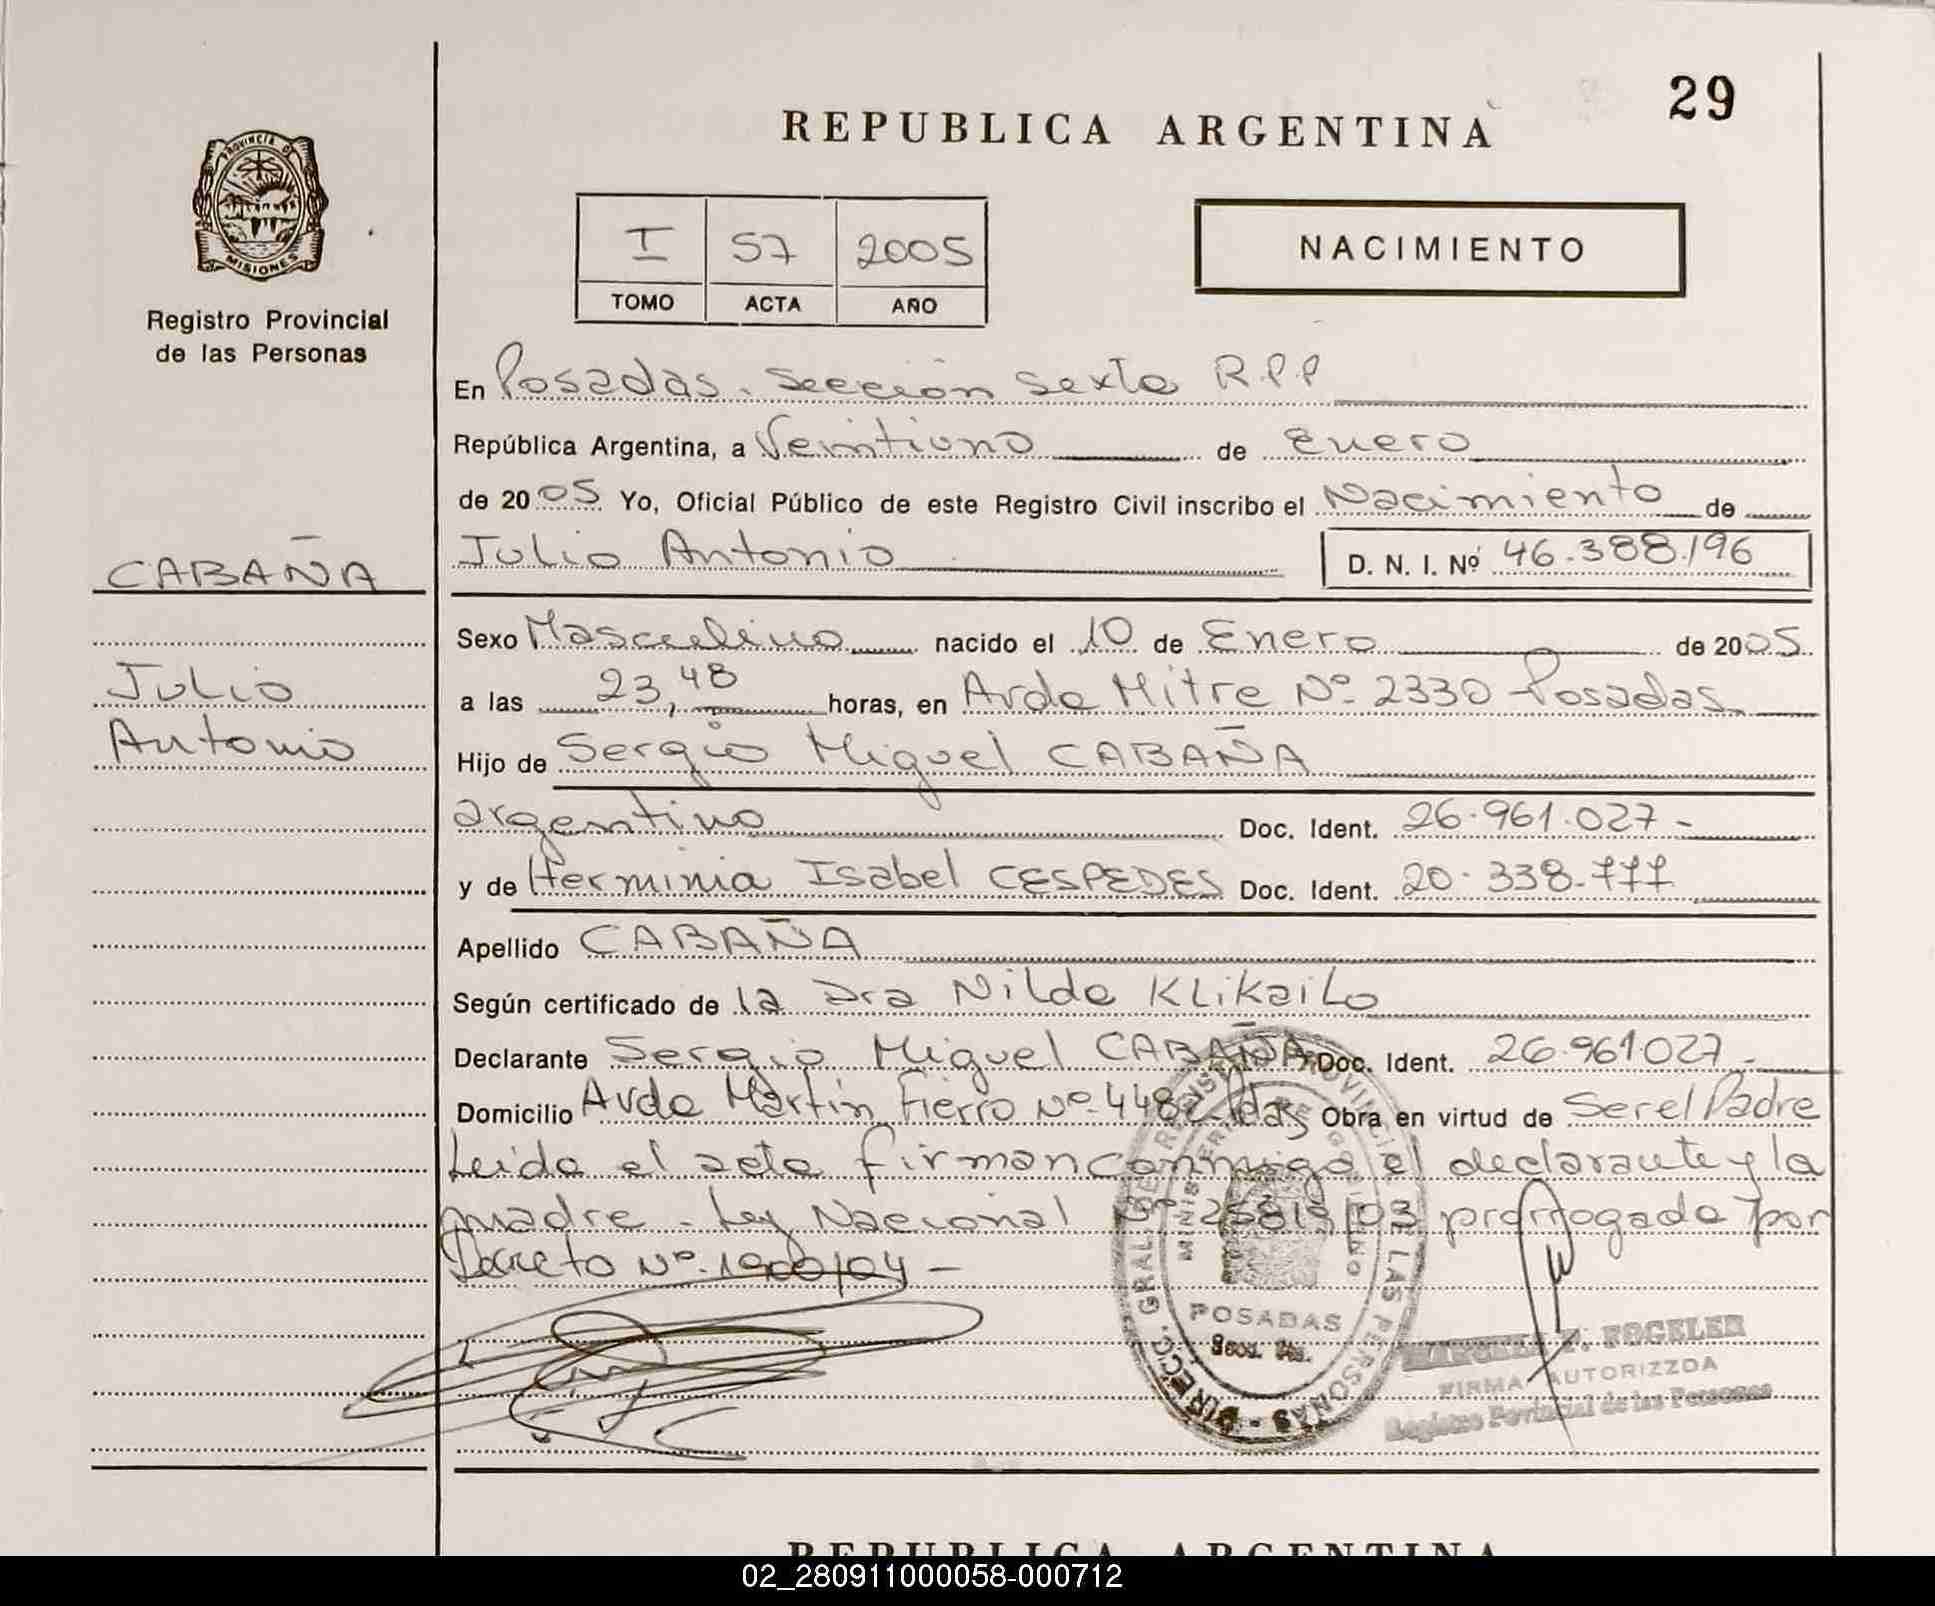 29
REPUBLICA ARGENTINA
PROVINCIA DE
MISIONES
Registro Provincial
de las Personas
I 57 2005
TOMO ACTA AÑO
NACIMIENTO
En Posadas. Sección Sexta R.P.P
República Argentina, a Veintiuno de Enero
de 2005 Yo, Oficial Público de este Registro Civil inscribo el Nacimiento de
Julio Antonio D. N. I. Nº 46.388.196
CABAÑA
Julio
Antonio
Sexo Masculino nacido el 10 de Enero de 2005
a las 23,48 horas, en Avda Mitre Nº 2330 Posadas
Hijo de Sergio Miguel CABAÑA
argentino Doc. Ident. 26.961.027-
y de Herminia Isabel CESPEDES Doc. Ident. 20.338.777
Apellido CABAÑA
Según certificado de la Dra Nilda Klikailo
Declarante Sergio Miguel CABAÑA Doc. Ident. 26.961.027-
Domicilio Avda Martin Fierro Nº 4482 Pdas Obra en virtud de Ser el Padre
Leida el acta firman conmigo el declarante y la
madre - Ley Nacional Nº 25819/03 prorrogada por
Decreto Nº 1900/04 -
DIRECC. GRAL. DE REGISTRO PROVINCIAL DE LAS PERSONAS
MINISTERIO DE GOBIERNO
POSADAS
Secc. 6ta.
F. FOGELER
FIRMA AUTORIZZDA
Registro Povincial de las Personas
REPUBLICA ARGENTINA
02_280911000058-000712